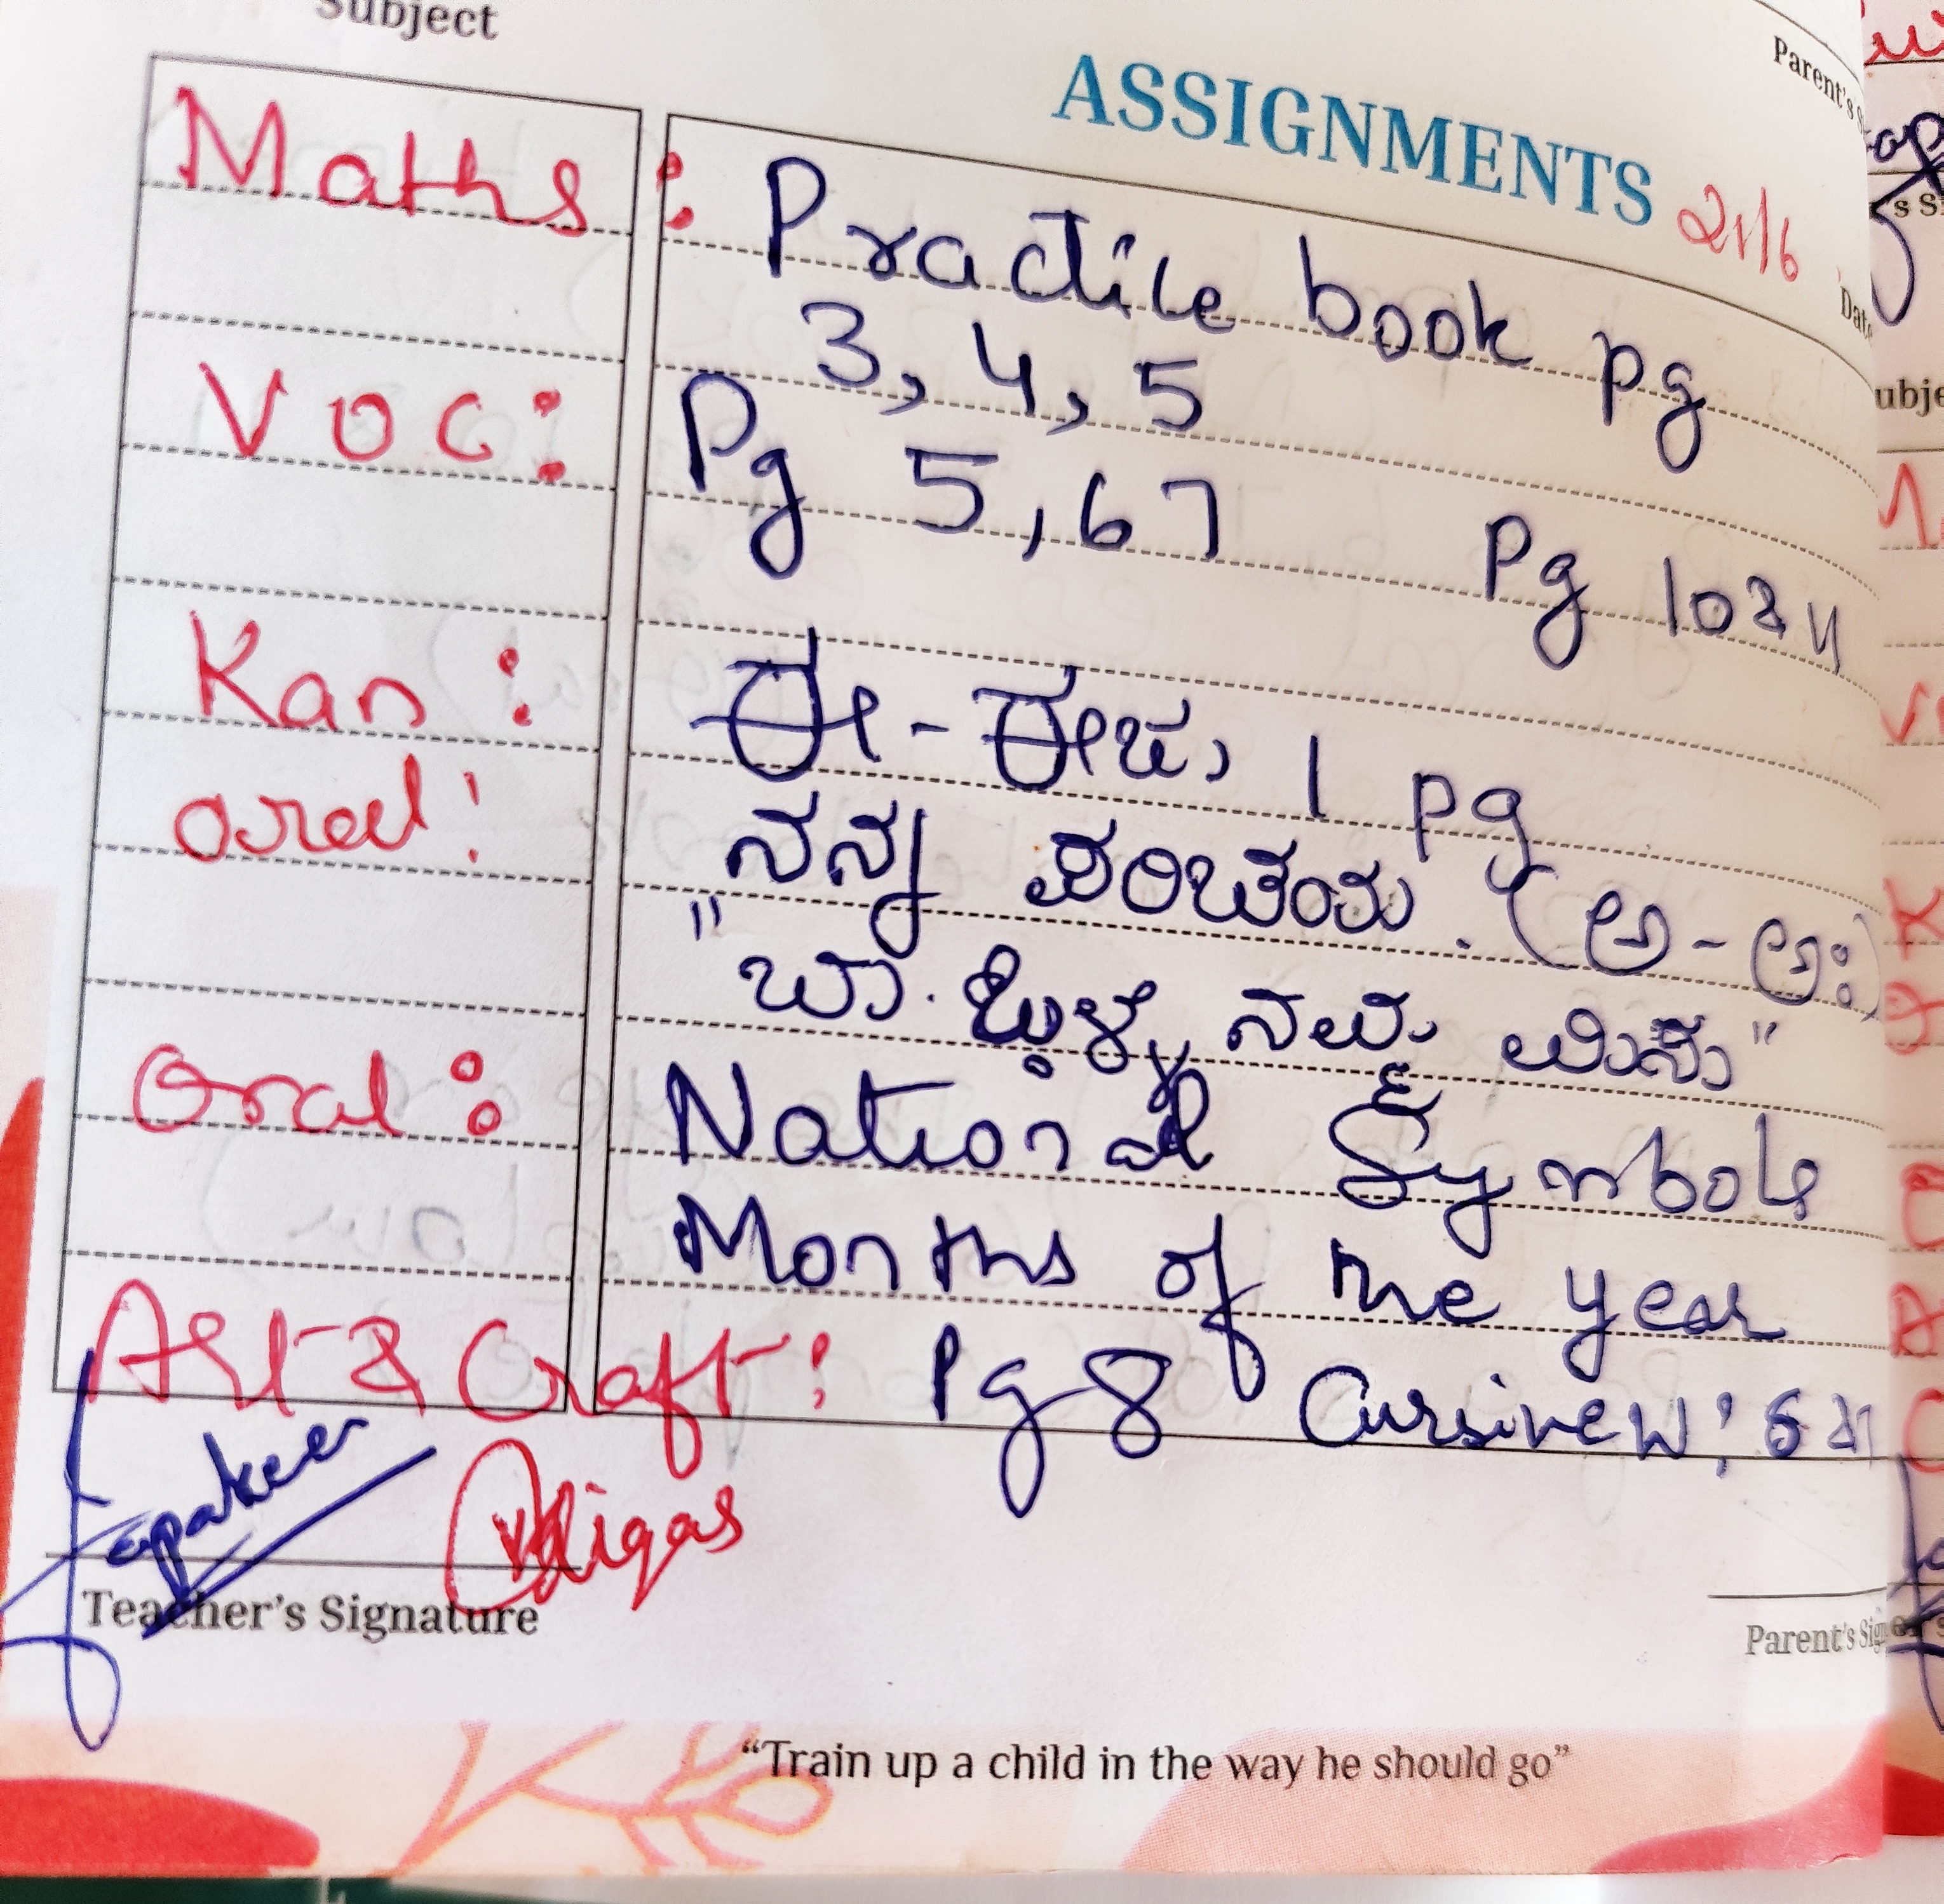 Subject
ASSIGNMENTS 21/6
Parent's
Date
Maths : Practice book pg
3, 4, 5
Voc : Pg 5, 6 7 Pg 10 & 11
Kan : ಈ - ಈಚು 1 pg
oral : ನನ್ನ ಪರಿಚಯ. (ಅ - ಅಃ)
"ಬಾ
Oral : National Symbols
Months of the year
Art & Craft : Pg 8 Cursive w :
Teacher's Signature
Parent's
"Train up a child in the way he should go"